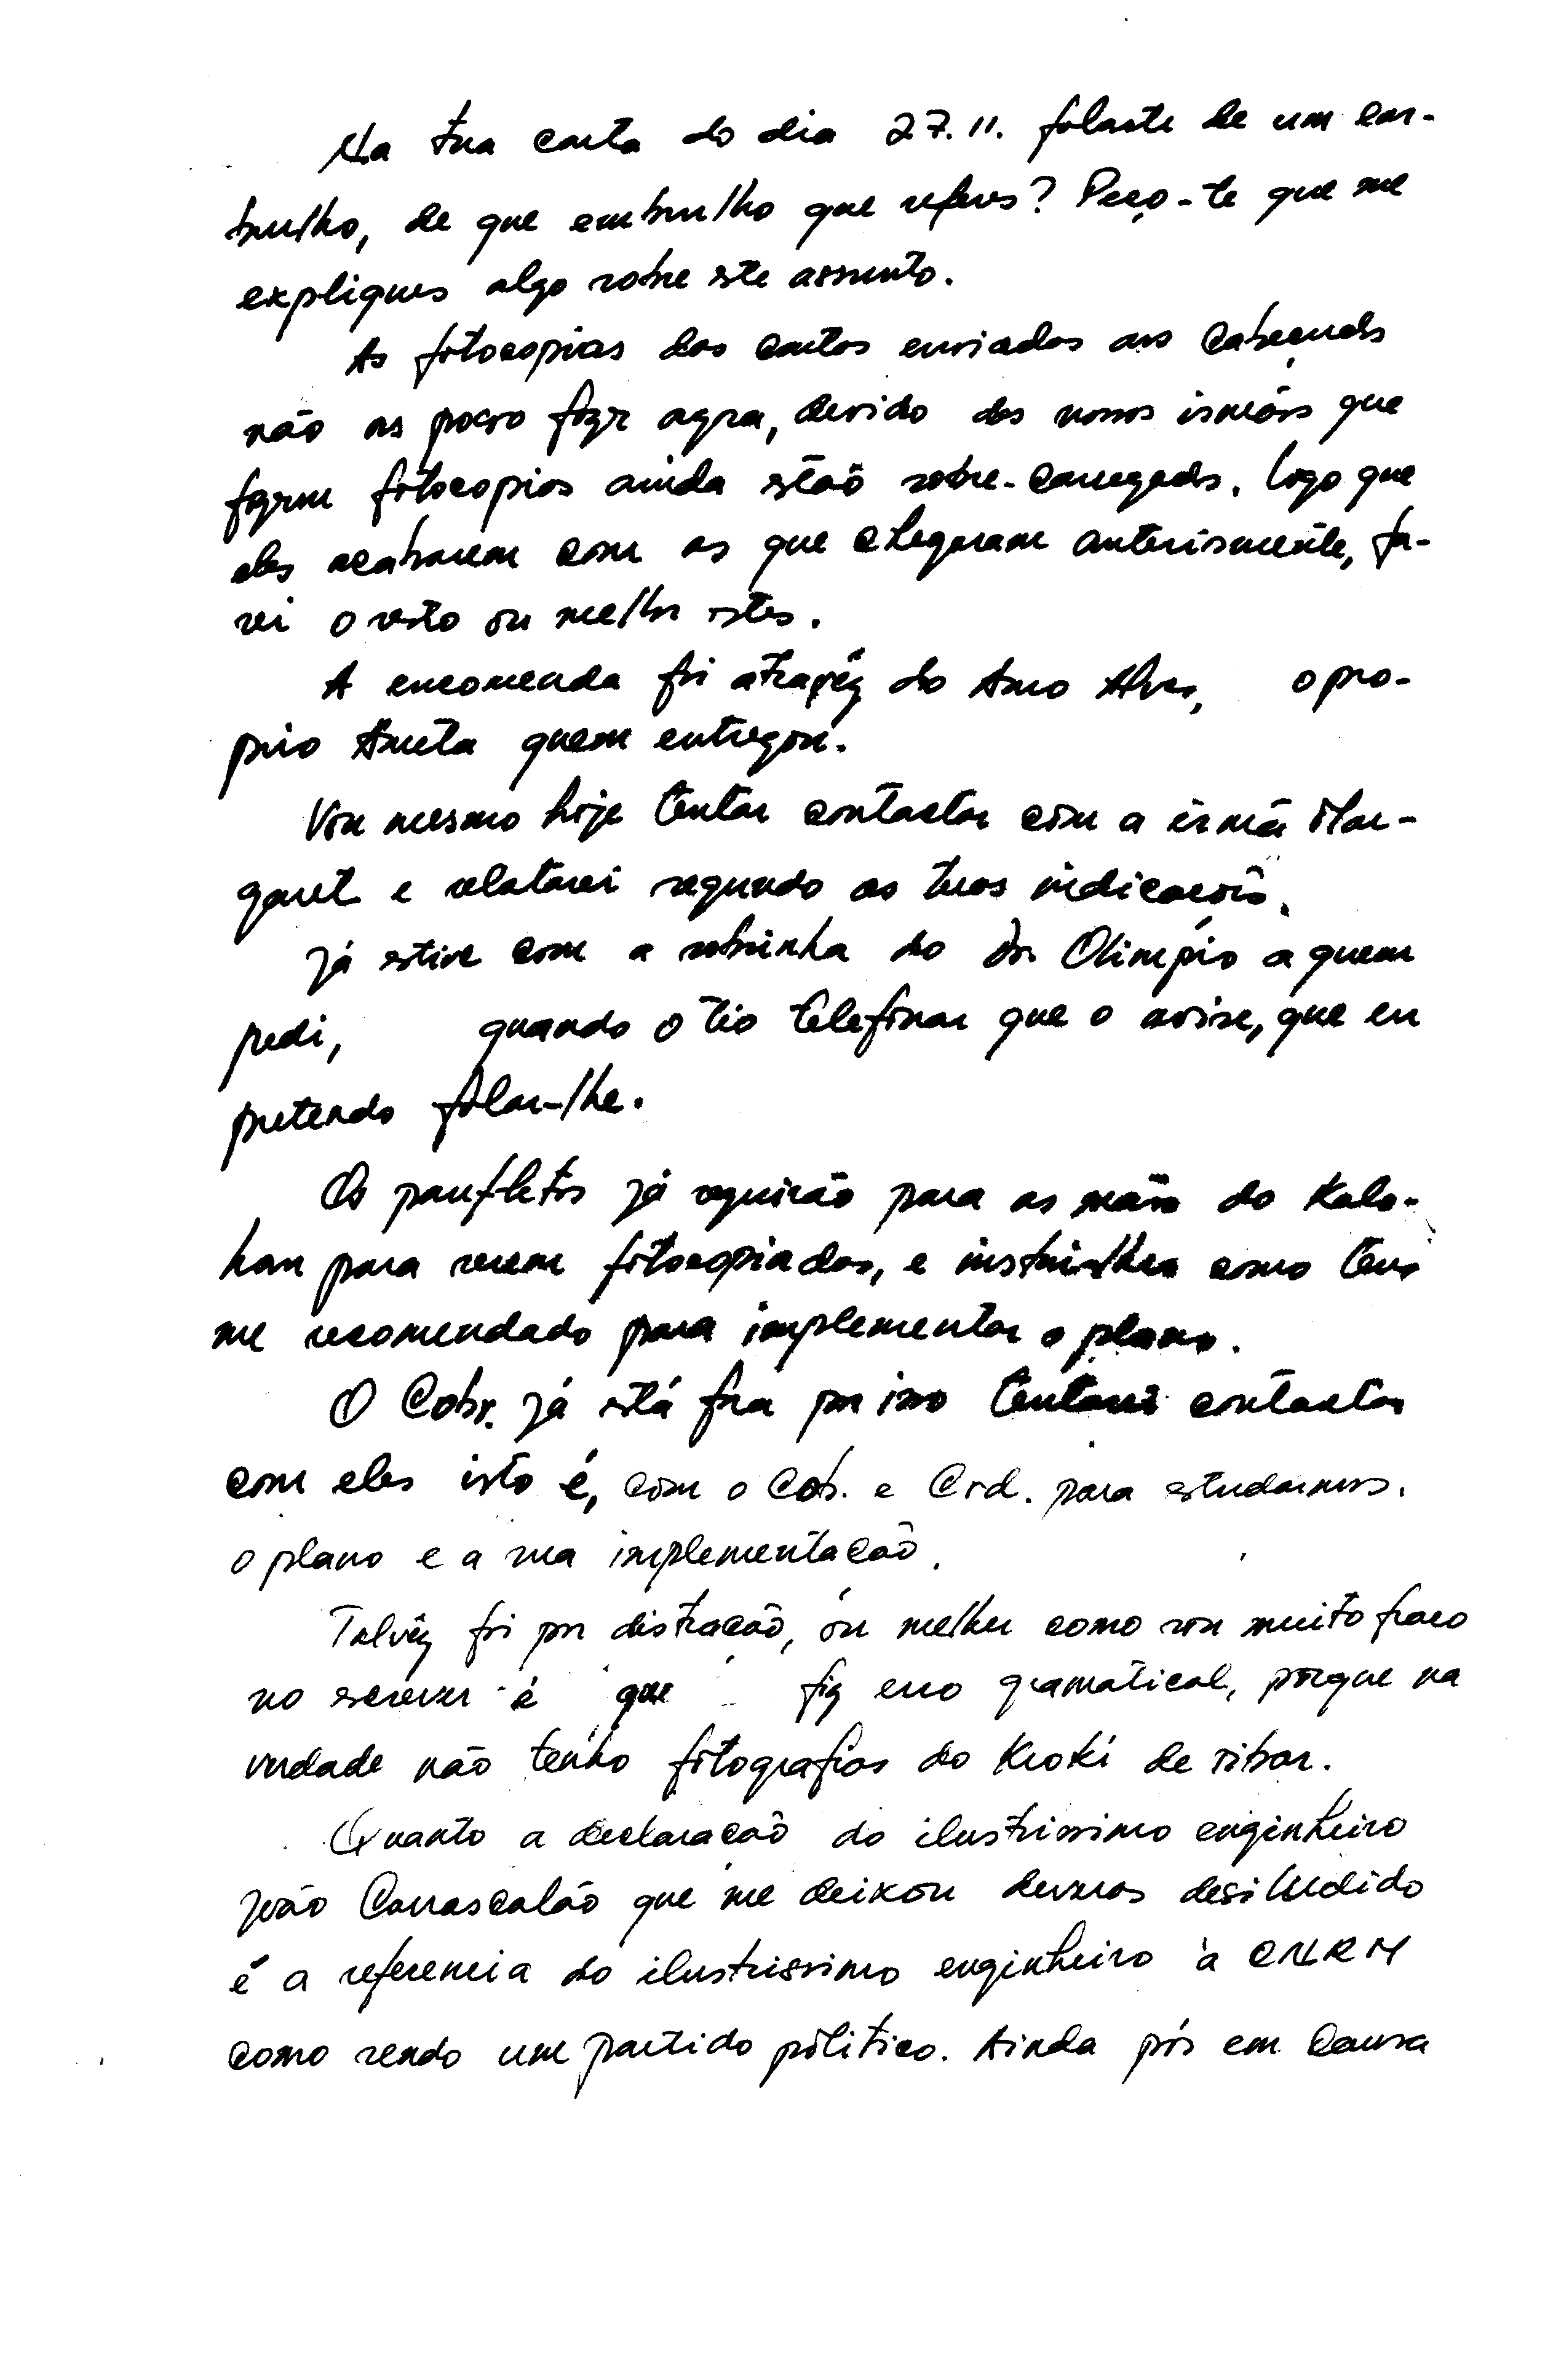 Na tua carta do dia 27.11. falaste de um em-
brulho, de que embrulho que referes? Peço-te que me
expliques algo sobre este assunto.
As fotocopias das cartas enviadas aos
não as posso fazer agora, devido dos nossos irmãos que
fazem fotocopias ainda estão sobre-carregados. Logo que
eles acabarem com as que chegaram anteriormente, fa-
rei o resto ou melhor estes.
A encomenda foi atravéz do Amo Alves, o pro-
prio Aneta quem entregou.
Vou mesmo hoje tentar contactar com a irmã Mar-
garet e relatarei segundo as tuas indicacões.
Já estive com a sobrinha do Dr. Olimpio a quem
pedi, quando o tio telefonar que o avise, que eu
pretendo falar-lhe.
Os panfletos já seguirão para as mãos do Kala-
han para serem fotocopiados, e como tens
me recomendado para implementar o plano.
O Cobr. já está fora por isso tentarei contactar
com eles isto é, com o Cob. e Crd. para estudarmos.
o plano e a sua implementacão.
Talvêz foi por distracão, ou melhor como sou muito fraco
no escrever é que fiz erro gramatical, porque na
verdade não tenho fotografias do Kroki de ribar.
Quanto a declaracão do ilustrissimo enginheiro
João Carrascalão que me deixou deveras desiludido
é a referencia do ilustrissimo enginheiro à CNRM
como sendo um partido politico. Ainda pôs em causa